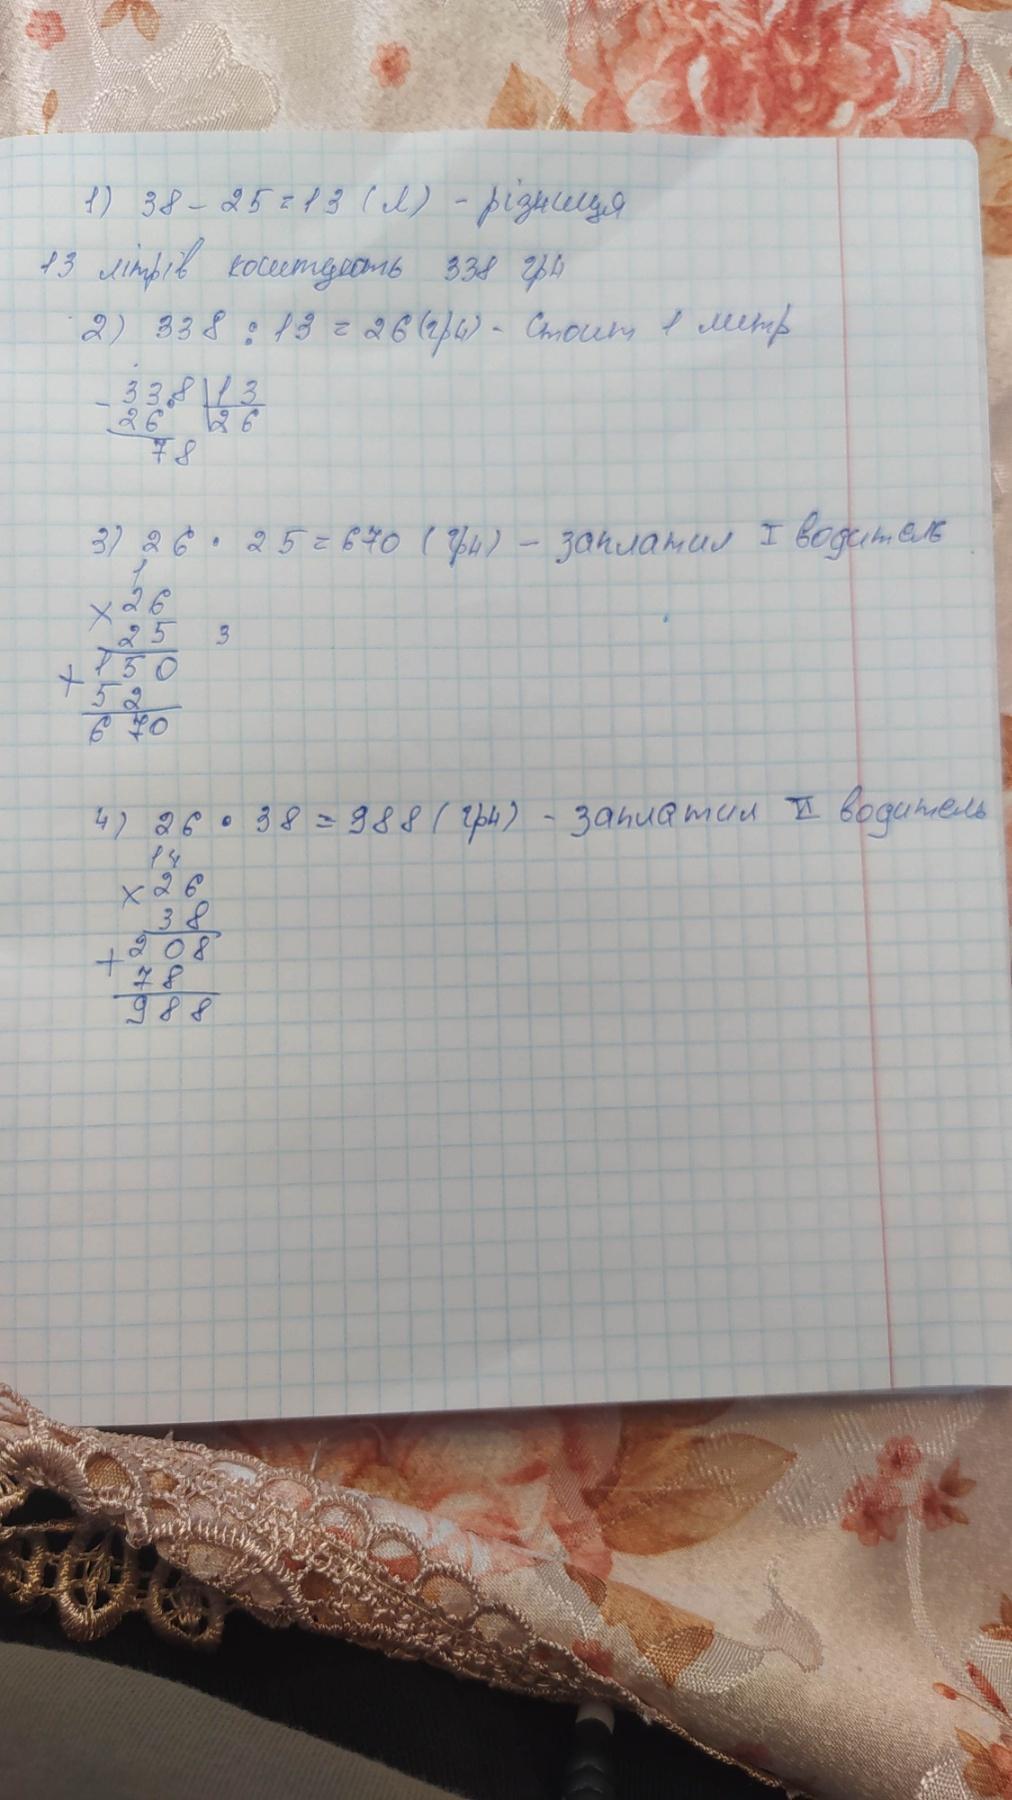 1) 38 - 25 = 13 (л) - різниця
13 літрів коштують 338 грн
2) 338 : 13 = 26 (грн) - Стоит 1 литр
- 338 | 13
26 | 26
78
3) 26 · 25 = 670 (грн) - заплатил I водитель
1
× 26
25 3
+ 150
52
670
4) 26 · 38 = 988 (грн) - заплатил II водитель
14
× 26
38
+ 208
78
988